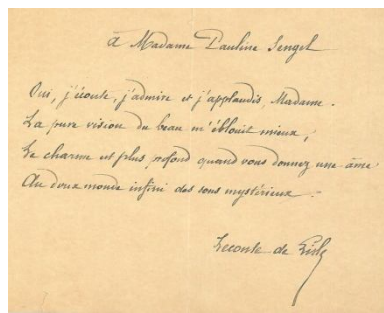 À Madame Pauline Sengel
Oui, j'écoute, j'admire et j'applaudis, Madame.
La pure vision du beau m'éblouit mieux ;
Le charme est plus profond quand vous donnez une âme
Au doux monde infini des sons mystérieux.
Leconte de Lisle